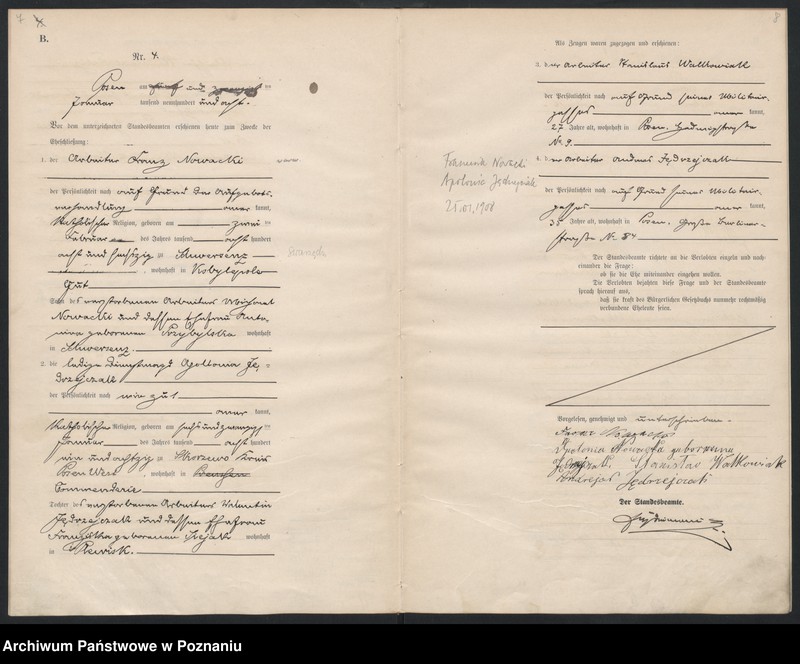 7
B.
Nr. 4.
Posen am fünf und zwanzigsten
Januar tausend neunhundert und acht.
Vor dem unterzeichneten Standesbeamten erschienen heute zum Zwecke der
Eheschließung:
1. der Arbeiter Franz Nowacki
der Persönlichkeit nach auf Grund der Aufgebots-
verhandlung kannt,
katholischer Religion, geboren am zwei ten
Februar des Jahres tausend acht hundert
acht und sechszig zu Schwersenz
, wohnhaft in Kobylepole
Gut
Sohn des verstorbenen Arbeiters Michael
Nowacki und dessen Ehefrau Anto-
nina geborenen Przybylska wohnhaft
in Schwersenz.
2. die ledige Dienstmagd Apollonia Ję-
drzejczak
der Persönlichkeit nach wie zu 1
kannt,
katholischer Religion, geboren am sechs und zwanzigsten
Januar des Jahres tausend acht hundert
ein und achtzig zu Skorzewo Kreis
Posen West, wohnhaft in
Commenderie
Tochter des verstorbenen Arbeiters Valentin
Jędrzejczak und dessen Ehefrau
Franziska geborenen wohnhaft
in Plewisk.
8
Als Zeugen waren zugezogen und erschienen:
3. der Arbeiter Stanislaus Walkowiak
der Persönlichkeit nach auf Grund seines Militair-
passes kannt,
27 Jahre alt, wohnhaft in Posen,
No 9.
4. der Arbeiter Andreas Jędrzejczak
der Persönlichkeit nach auf Grund seines Militair-
passes kannt,
35 Jahre alt, wohnhaft in Posen, Große Berliner-
straße No 84
Der Standesbeamte richtete an die Verlobten einzeln und nach-
einander die Frage:
ob sie die Ehe miteinander eingehen wollen.
Die Verlobten bejahten diese Frage und der Standesbeamte
sprach hierauf aus,
daß sie kraft des Bürgerlichen Gesetzbuchs nunmehr rechtmäßig
verbundene Eheleute seien.
Vorgelesen, genehmigt und unterschrieben.
Apolonia Nowacka geborenen
Stanisław Walkowiak
Andrzej Jędrzejczak
Der Standesbeamte.
Franciszek Nowacki
Apolonia Jędrzejczak
25.01.1908
Swarzędz
Archiwum Państwowe w Poznaniu